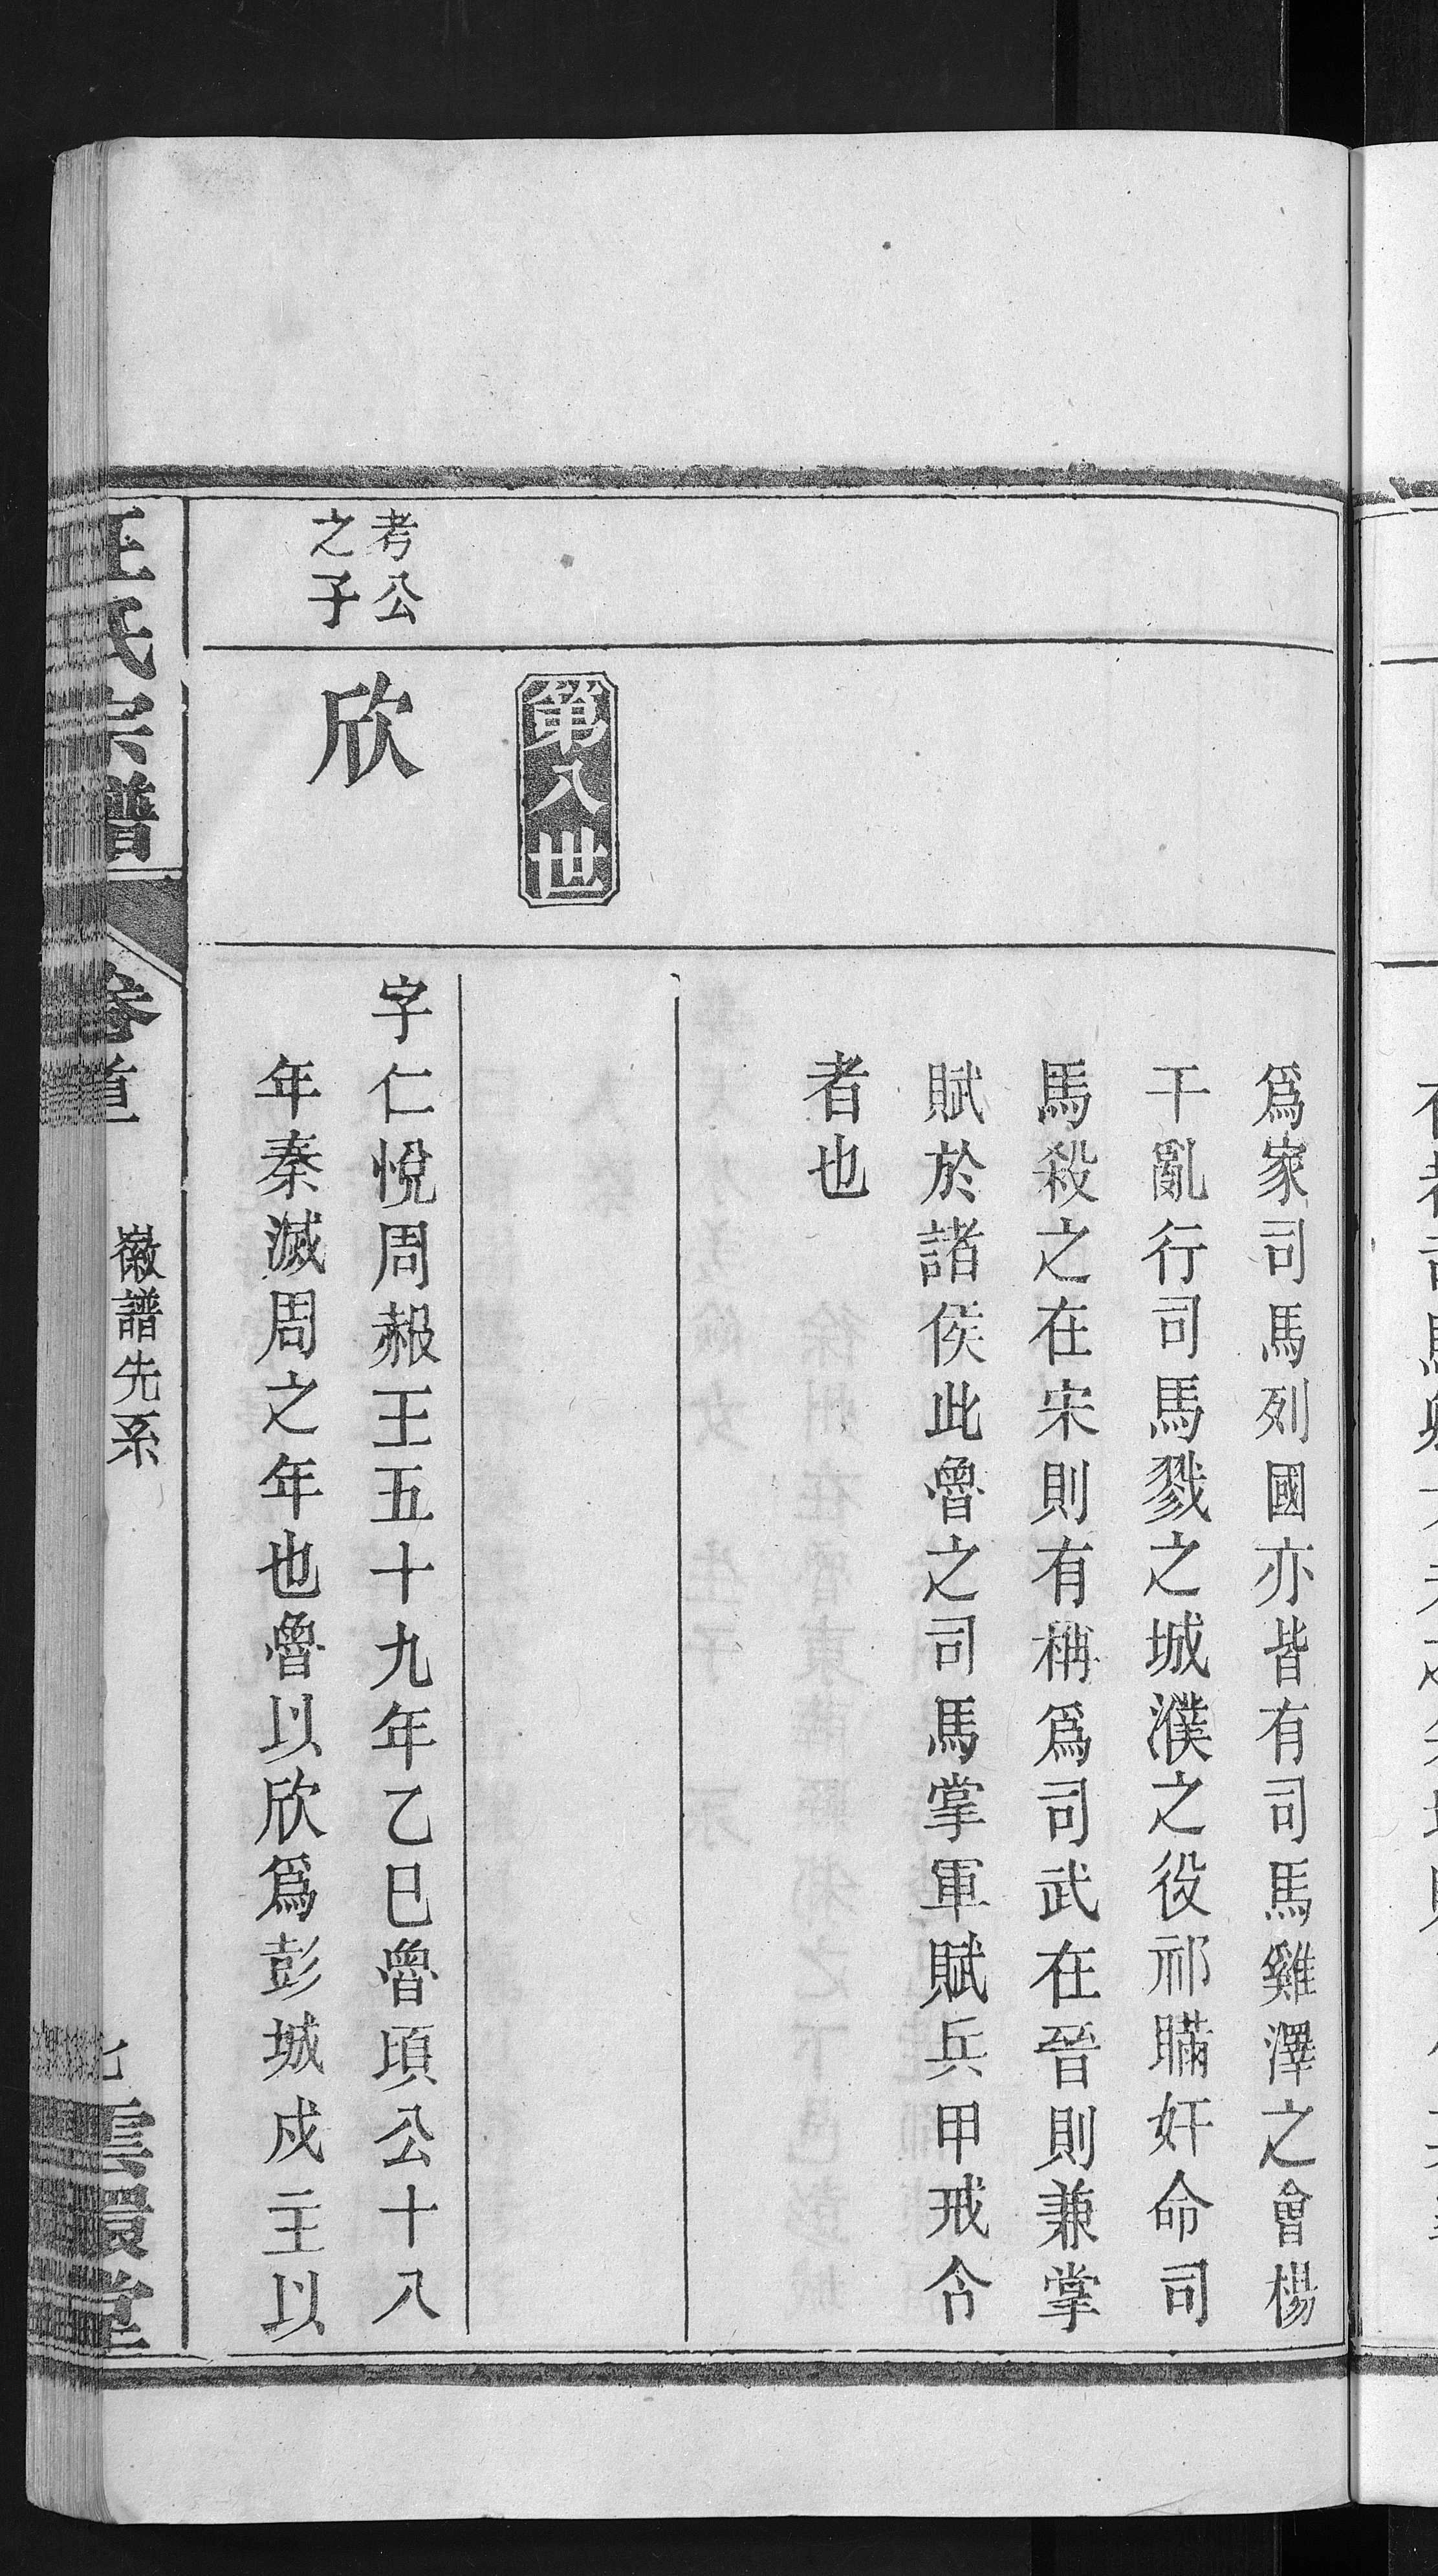 爲家司馬列國亦皆有司馬雞澤之會楊
干亂行司馬戮之城濮之役祁瞞奸命司
馬殺之在宋則有稱爲司武在晉則兼掌
賦於諸侯此魯之司馬掌軍賦兵甲戒令
者也
第八世
考公
之子
欣
字仁悅周赧王五十九年乙巳魯頃公十八
年秦滅周之年也魯以欣爲彭城戍主以
氏宗譜
卷首
徽譜先系
雲環堂